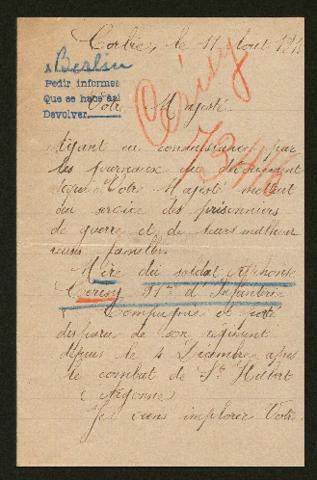 Corbie, le 11 Août 191
Berlin
Cerisy
Pedir informes
Que se hace así
Devolver.
Votre Majesté
7346
Ayant eu connaissance par
les journeaux du dévouement
que Votre Majesté mettait
au service des prisonniers
de guerre et de leurs malheu
reuses familles
Mère du soldat Alphonse
Cerisy 51me d'Infanterie
Compagnie
disparu de son régiment
depuis le 4 Décembre après
le combat de St Hubert
(Argonne)
Je viens implorer Votre